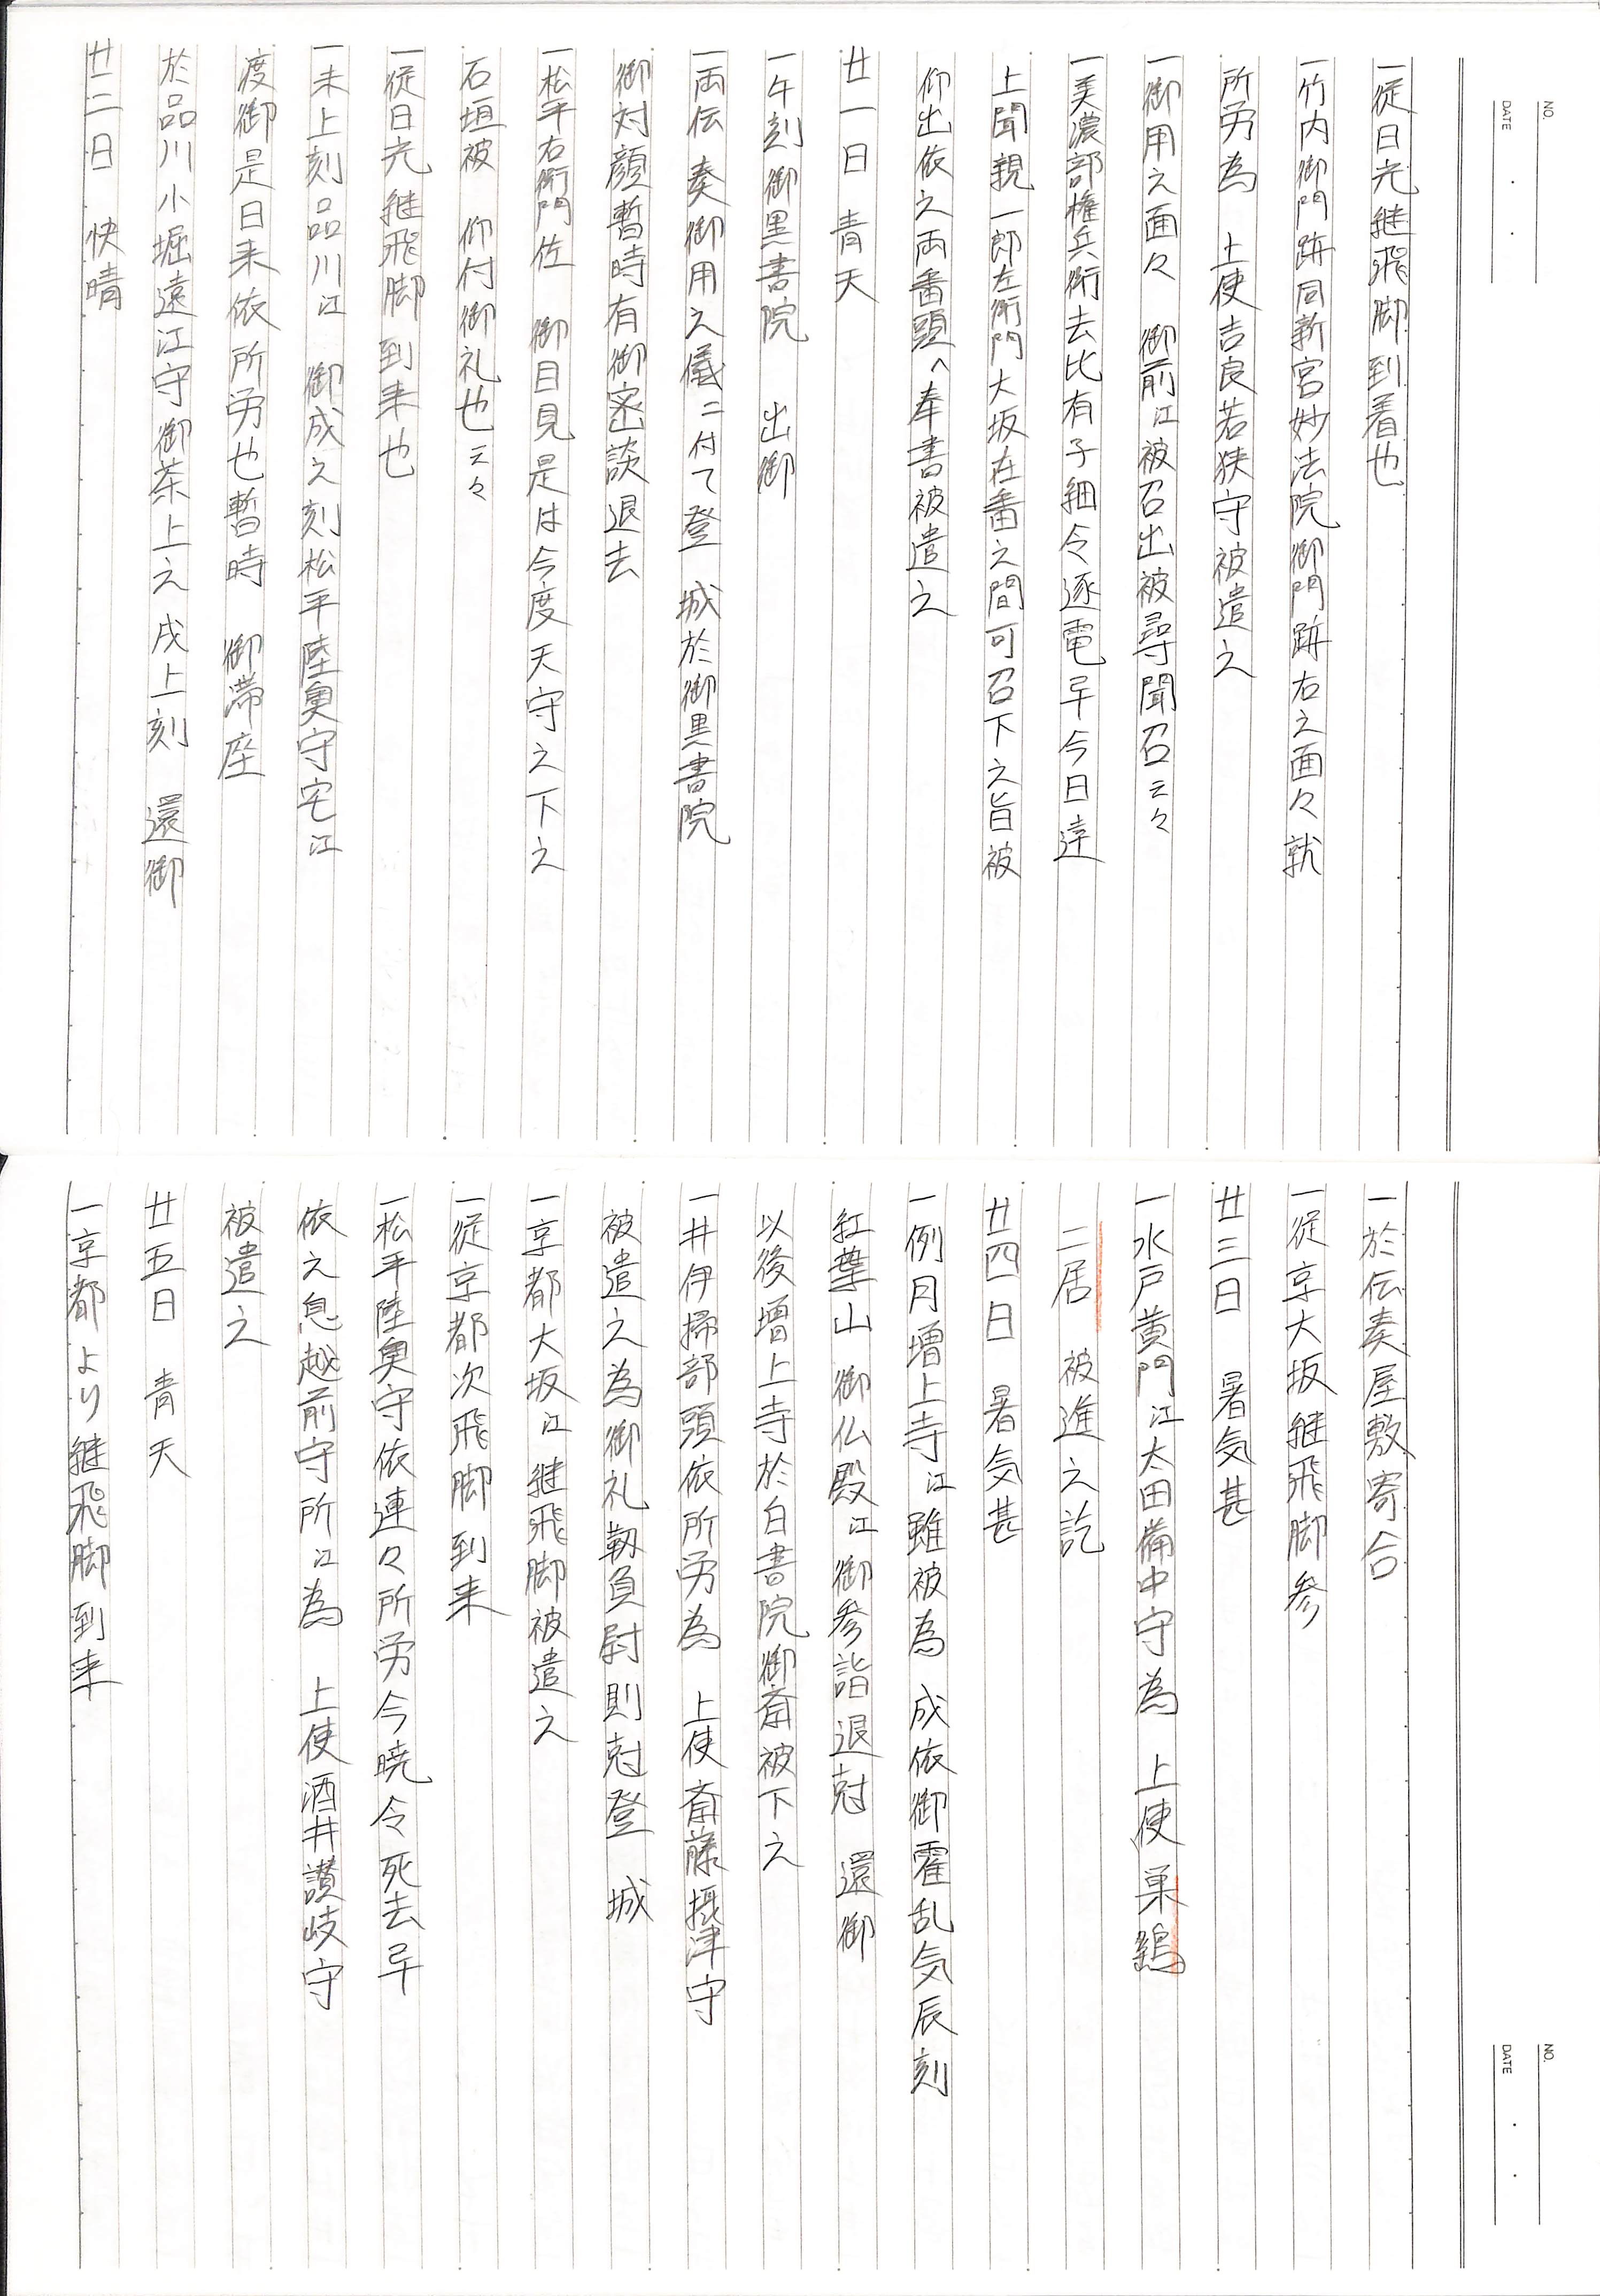 NO.
DATE ・ ・
一従日光継飛脚到着也
一竹内御門跡同新宮妙法院御門跡右之面々就
所労為 上使吉良若狭守被遣之
一御用之面々 御前江被召出被尋聞召云々
一美濃部権兵衛去比有子細令逐電早今日達
上聞親一郎左衛門大坂在番之間可召下之旨被
仰出依之両番頭へ奉書被遣之
廿一日 青天
一午刻御黒書院 出御
一両伝 奏御用之儀ニ付て登 城於御黒書院
御対顔暫時有御密談退去
一松平右衛門佐 御目見是は今度天守之下之
石垣被 仰付御礼也云々
一従日光継飛脚到来也
一未上刻品川江 御成之刻松平陸奥守宅江
渡御是日来依所労也暫時 御滞座
於品川小堀遠江守御茶上之戌上刻 還御
廿二日 快晴
NO.
DATE ・ ・
一於伝奏屋敷寄合
一従京大坂継飛脚参
廿三日 暑気甚
一水戸黄門江太田備中守為 上使巣鷂
二居 被進之訖
廿四日 暑気甚
一例月増上寺江雖被為 成依御霍乱気辰刻
紅葉山 御仏殿江御参詣退尅 還御
以後増上寺於白書院御斎被下之
一井伊掃部頭依所労為 上使斎藤摂津守
被遣之為御礼靱負尉則尅登 城
一京都大坂江継飛脚被遣之
一従京都次飛脚到来
一松平陸奥守依連々所労今暁令死去早
依之息越前守所江為 上使酒井讃岐守
被遣之
廿五日 青天
一京都より継飛脚到来